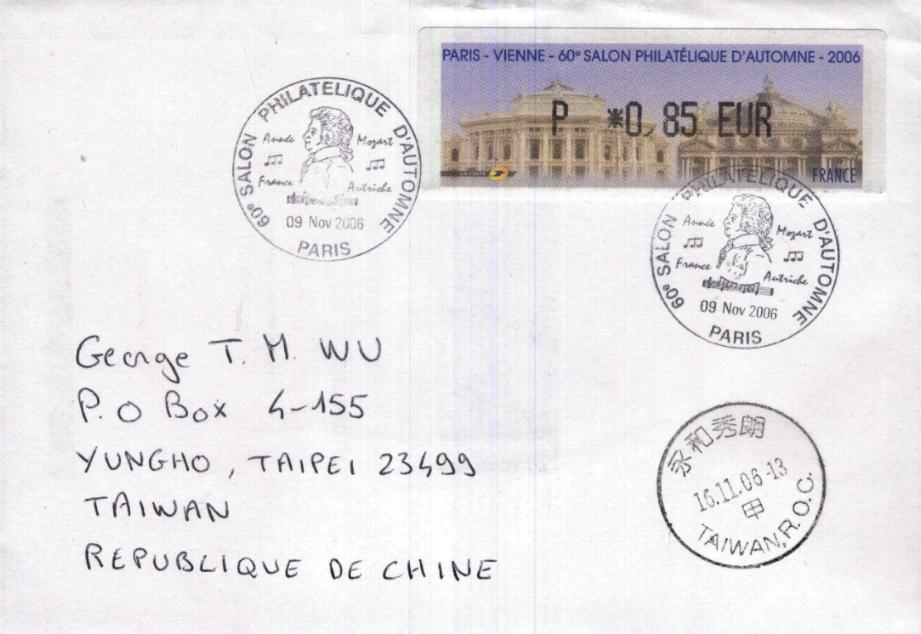 PARIS - VIENNE - 60e SALON PHILATÉLIQUE D'AUTOMNE - 2006
P *0,85 EUR
FRANCE
60e SALON PHILATELIQUE D'AUTOMNE
Année Mozart
France Autriche
09 Nov 2006
PARIS
60e SALON PHILATELIQUE D'AUTOMNE
Année Mozart
France Autriche
09 Nov 2006
PARIS
George T. M. WU
P.O Box 4-155
YUNGHO, TAIPEI 23499
TAIWAN
REPUBLIQUE DE CHINE
永和秀朗
16.11.06-13
甲
TAIWAN, R.O.C.